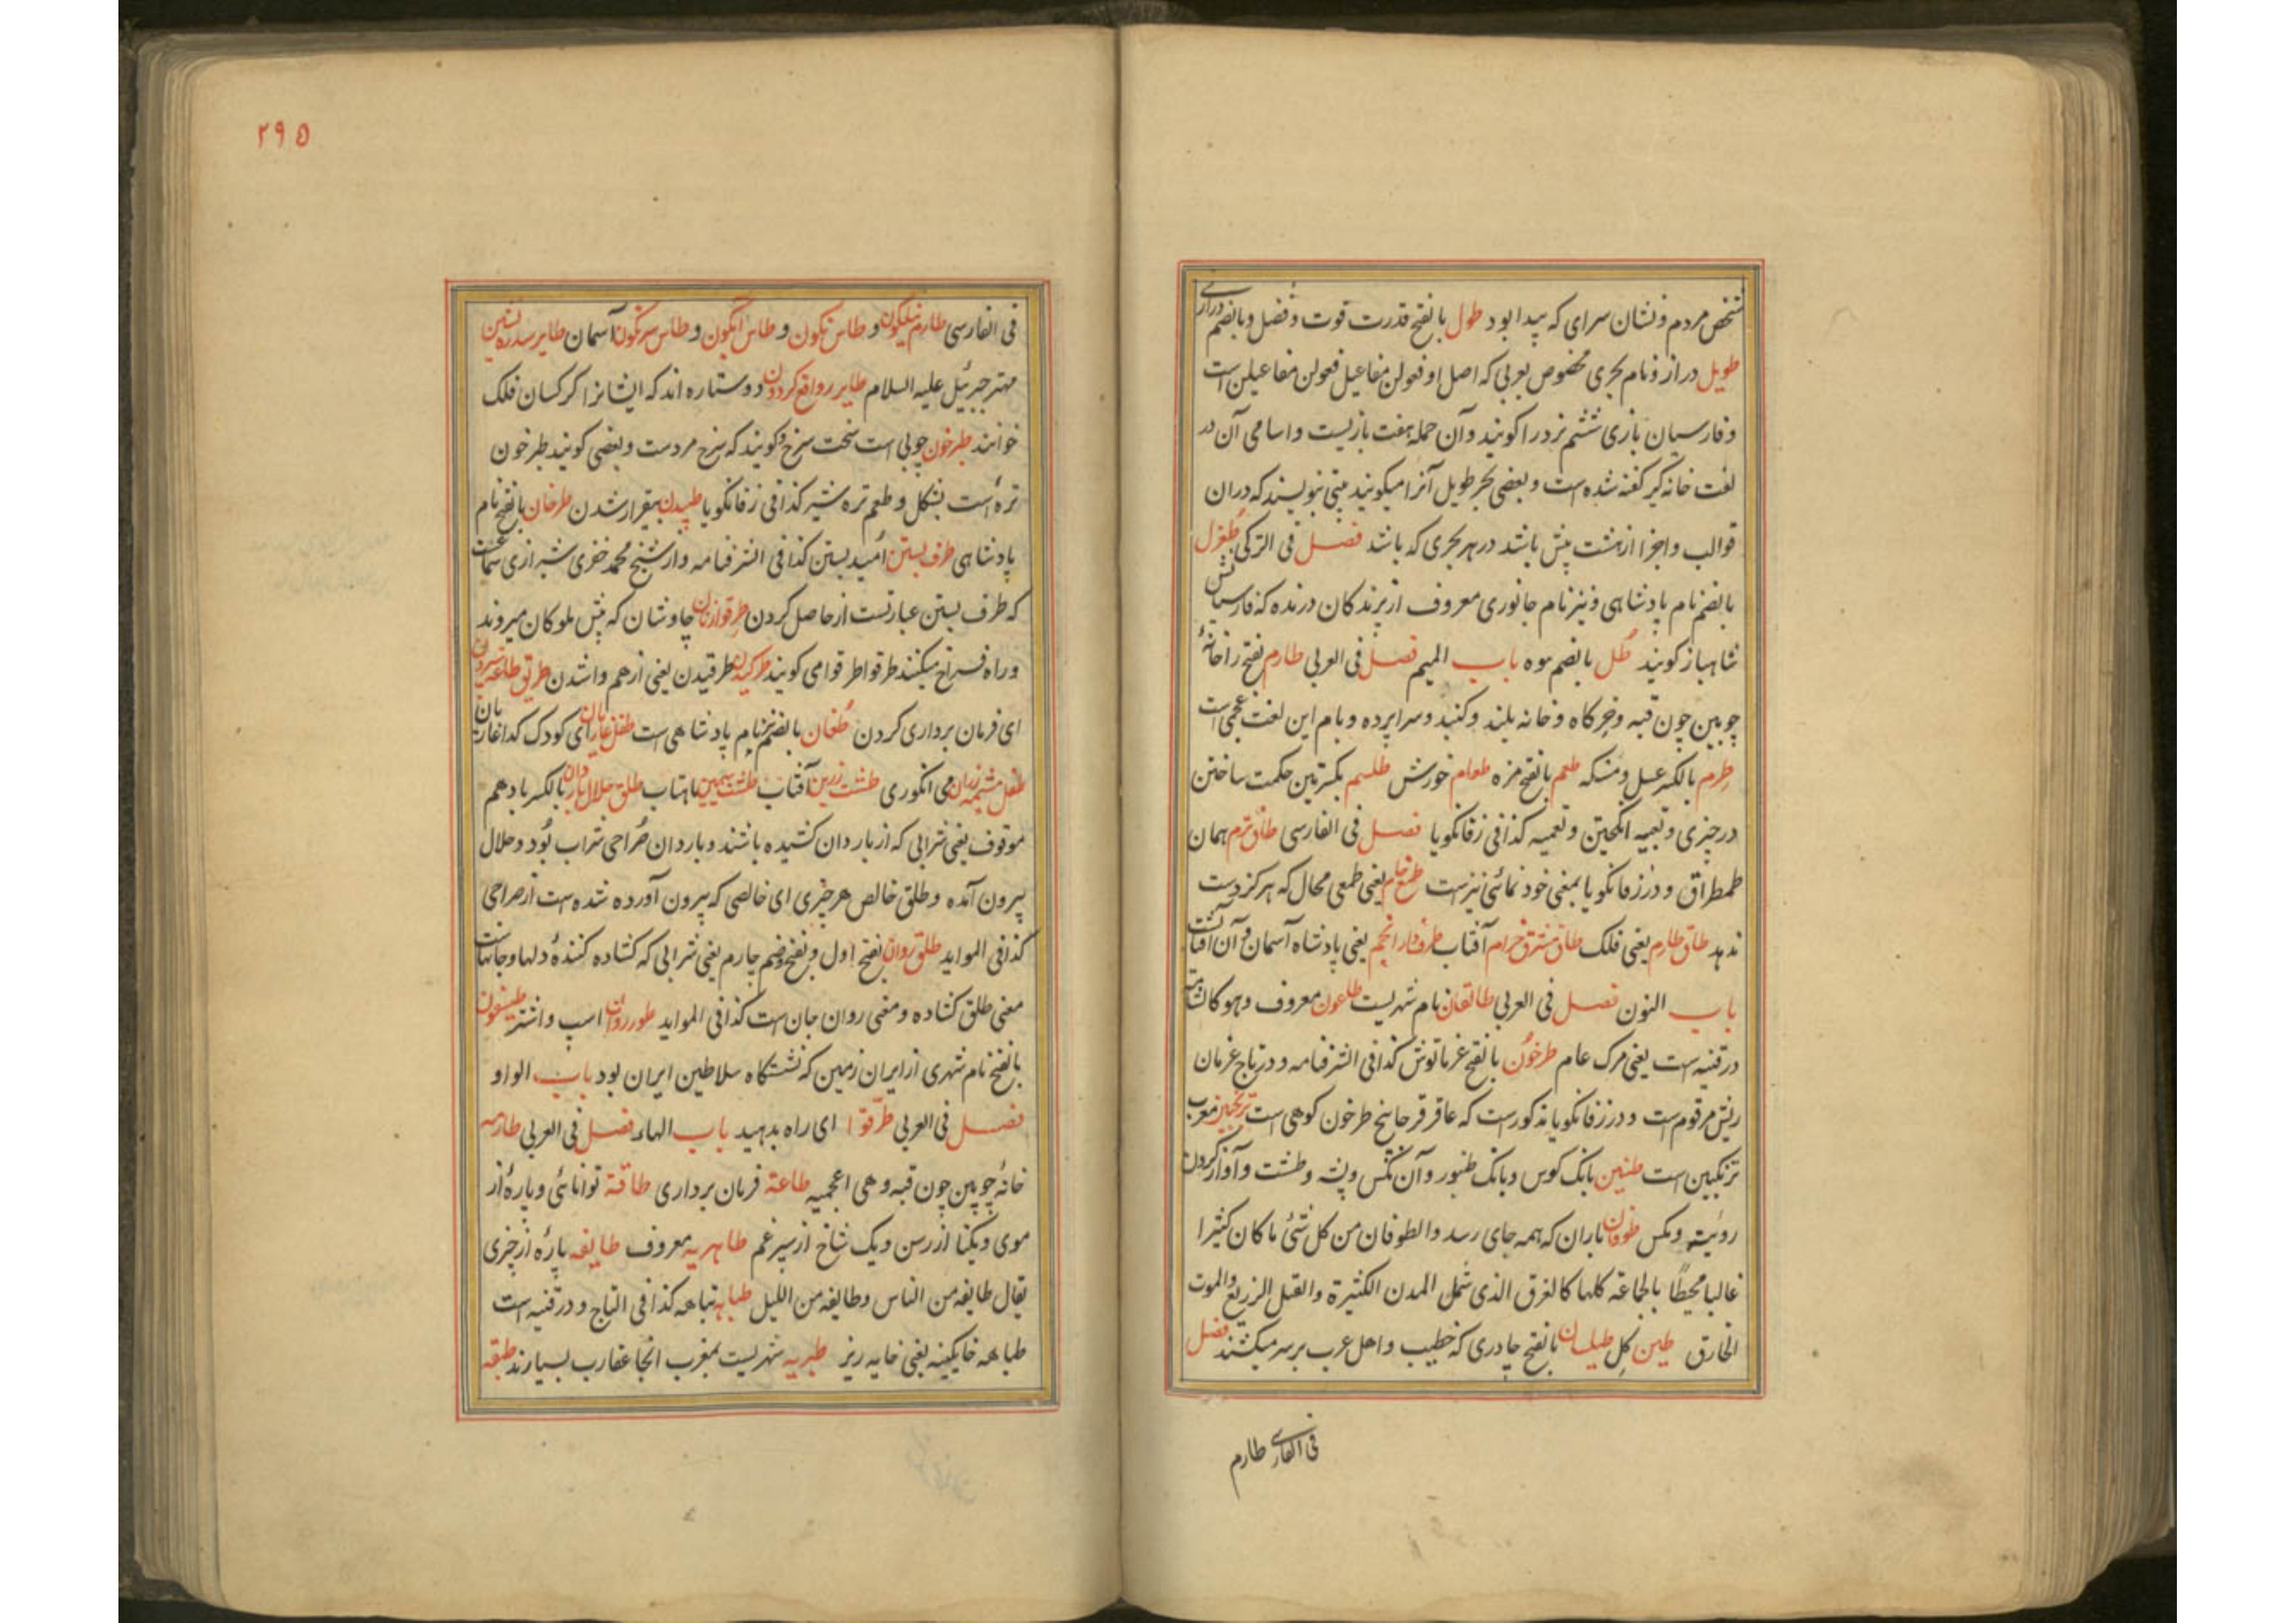 شخص مردم و نشان سرای که پیدا بود طول بالفتح قدرت قوت و فضل و بالضم درازی
طویل دراز و نام بحری مخصوص بعربی که اصل او فعولن مفاعیل فعولن مفاعیلن است
و فارسیان بازی ششم نرد را کویند و آن جمله هفت بازیست و اسامی آن در
لغت خانه کیر کفته شده است و بعضی بحر طویل آنرا میکویند بیتی بنویسند که دران
قوالب و اجزا از هشت بیش باشد در هر بحری که باشد فصل فی الترکی طغرل
بالضم نام پادشاهی و نیز نام جانوری معروف از پرندکان درنده که فارسیانش
شاهباز کویند طُل بالضم موه باب المیم فصل فی العربی طارم بفتح را خانهٔ
چوبین چون قبه و خرکاه و خانه بلند و کنبد و سراپرده و بام این لغت عجمی است
طِرم بالکسر عسل و مسکه طعم بالفتح مزه طعام خورش طلسم بکسرتین حکمت ساختن
در چیزی و تعبیه انکیختن و تعمیه کذا فی زفانکویا فصل فی الفارسی طاق ترم همان
طمطراق و در زفانکویا بمعنی خود نمائی نیز است طمع خام یعنی طمعی محال که هرکز دست
ندهد طاق طارم یعنی فلک طاق مشرق خرام آفتاب طرفدار انجم یعنی پادشاه آسمان و آن آفتاب است
باب النون فصل فی العربی طالقان نام شهریست طاعون معروف و هو کالشامة
در قنیه است یعنی مرک عام طرخون بالفتح کذا فی الشرفنامه و در تاج
ریش مرقوم است و در زفانکویا مذکور است که عاقر قرحا بیخ طرخون کوهی است ترنجبین معرب
ترنکبین است طنین بانک کوس و بانک طنبور و آن مکس و پشه و طشت و آواز کردن
روئینه و مکس طوفان باران که همه جای رسد و الطوفان من کل شئ ما کان کثیرا
غالبا محیطًا بالجماعة کلها کالغرق الذی شمل المدن الکثیرة و القتل الزریع و الموت
الخارق طین کِل طیلسان بالفتح چادری که خطیب و اهل عرب بر سر میکشند فصل
فی الفارسی طارم
۲۹۵
فی الفارسی طارم نیلکون و طاس نکون و طاس آبکون و طاس سرنکون آسمان طایر سدره نشین
مهتر جبرئیل علیه السلام طایر و واقع کردون دو ستاره اند که ایشانرا کرکسان فلک
خوانند طبرخون چوبی است سخت سرخ و کویند که سرخ مردست و بعضی کویند طبرخون
تره است بشکل و طعم تره کذا فی زفانکویا طپیدن بیقرار شدن طرخان بالفتح نام
پادشاهی طرف بستن امید بستن کذا فی الشرفنامه و از شیخ محمد خضری شیرازی
که طرف بستن عبارتست از حاصل کردن طرقوازنان چاوشان که پیش ملوکان میروند
و راه فراخ میکنند طرقوا طرقوا می کویند طرکیدن طرقیدن یعنی از هم واشدن طریق طاعة سپردن
ای فرمان برداری کردن طغان بالضم نام پادشاهی است طفل کودک
طفل مشیمه رزان می انکوری طشت زرین آفتاب طشت سیمین ماهتاب طلق حلال باردان بالکسر با دهم
موقوف یعنی شرابی که از باردان کشیده باشند و باردان صُراحی شراب بُود و حلال
بیرون آمده و طلق خالص هر چیزی ای خالصی که بیرون آورده شده است از صراحی
کذا فی الموايد طلق روان بفتح اول و بفتح و ضم چارم یعنی شرابی که کشاده کنندهٔ دلها و جانهاست
معنی طلق کشاده و معنی روان جان است کذا فی الموايد طور روان اسپ و اشتر طیسفون
بالفتح نام شهری از ایران زمین که نشستکاه سلاطین ایران بود باب الواو
فصل فی العربی طرّقوا ای راه بدهید باب الهاء فصل فی العربی طارمه
خانهٔ چوبین چون قبه و هی اعجمیه طاعة فرمان برداری طاقة توانائی و پارهٔ از
موی و یکتا از رسن و یک شاخ از سپرغم طاهریه معروف طایفه پارهٔ از چیزی
یقال طایفه من الناس و طایفه من اللیل طباهه تباهه کذا فی التاج و در قنیه است
طباهه خاکینه یعنی خایه ریز طبریه شهریست بمغرب آنجا عقارب بسیارند طبقه